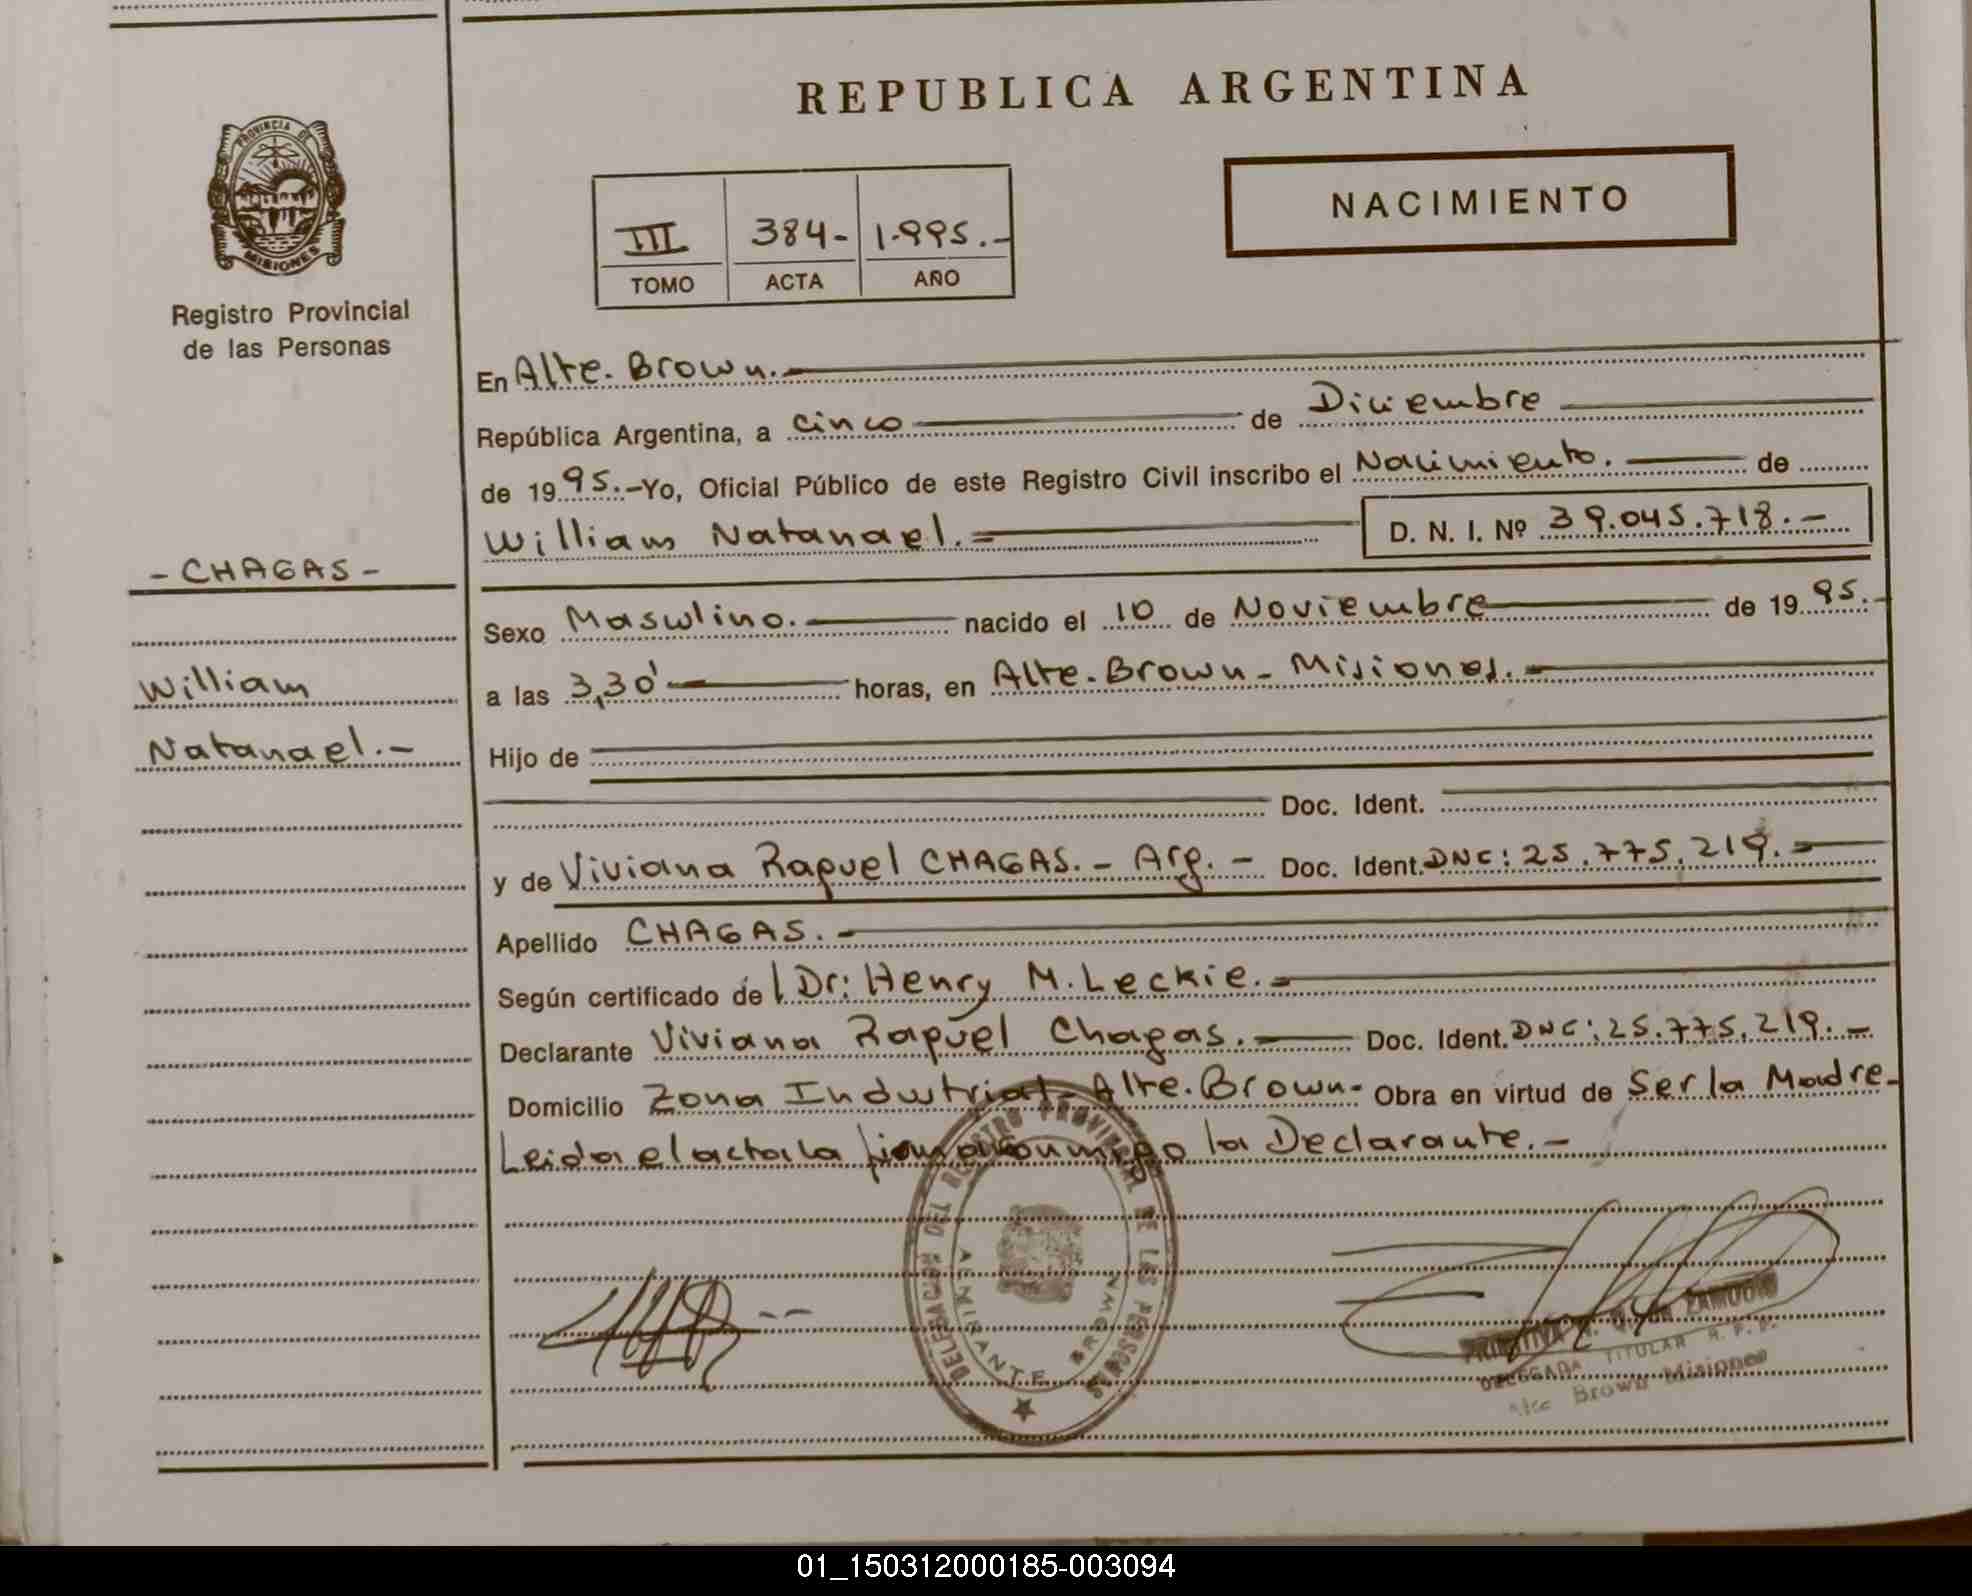 REPUBLICA ARGENTINA
PROVINCIA DE
MISIONES
Registro Provincial
de las Personas
III 384- 1.995.-
TOMO ACTA AÑO
NACIMIENTO
En Alte. Brown.-
República Argentina, a cinco de Diciembre
de 1995.- Yo, Oficial Público de este Registro Civil inscribo el Nacimiento. de
William Natanael.= D. N. I. Nº 39.045.718.-
- CHAGAS -
William
Natanael.-
Sexo Masculino. nacido el 10 de Noviembre de 1995.-
a las 3,30' horas, en Alte. Brown - Misiones.-
Hijo de
Doc. Ident.
y de Viviana Raquel CHAGAS. - Arg. - Doc. Ident. DNC: 25.775.219.-
Apellido CHAGAS.-
Según certificado de l Dr: Henry M. Leckie.-
Declarante Viviana Raquel Chagas. Doc. Ident. DNC: 25.775.219.-
Domicilio Zona Industrial - Alte. Brown- Obra en virtud de Ser la Madre-
Leida el acta la firma conmigo la Declarante.-
DELEGACION DEL REGISTRO PROVINCIAL DE LAS PERSONAS
ALMIRANTE BROWN
ZAMUDIO
DELEGADA TITULAR R. P. P.
Alte Brown Misiones
01_150312000185-003094